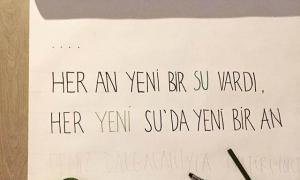 ....
HER AN YENİ BIR SU VARDI,
HER YENİ SU'DA YENİ BİR AN